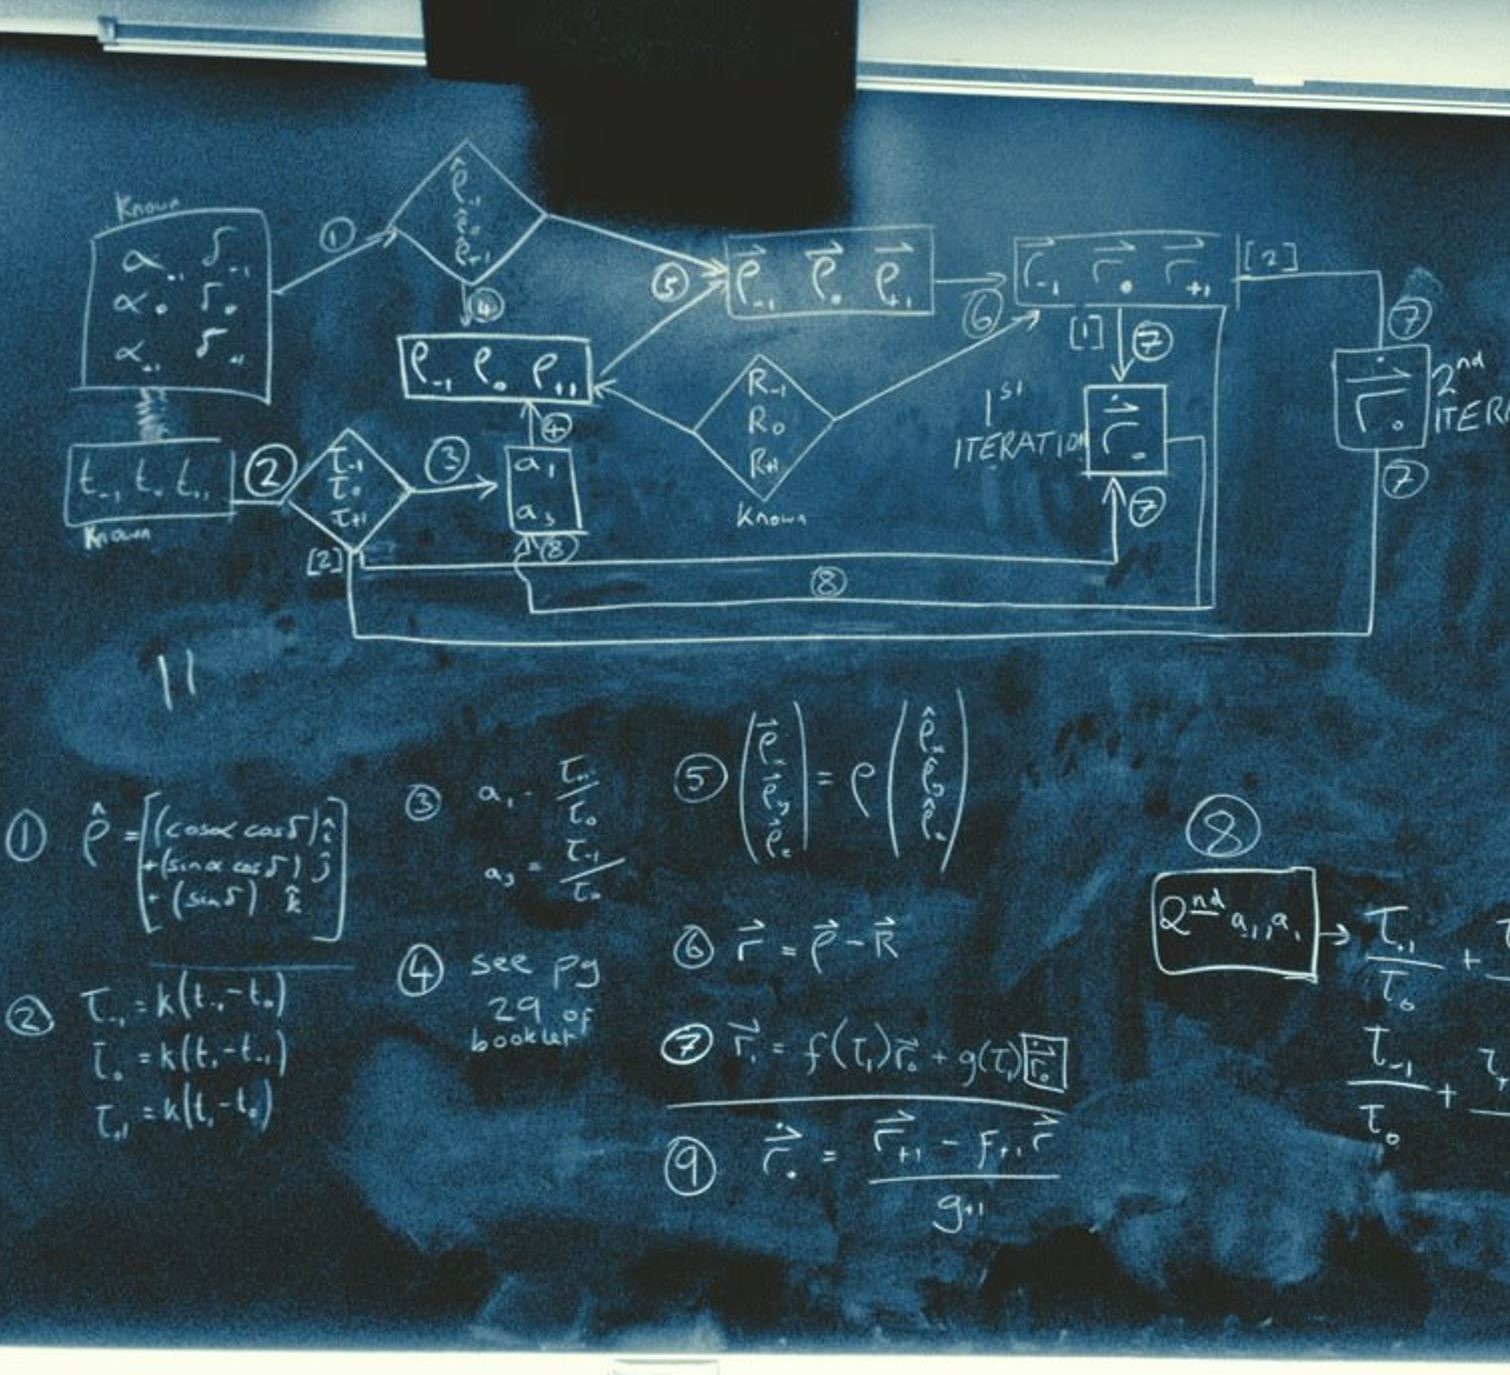 Known
α₋₁ δ₋₁
α₀ δ₀
α₊₁ δ₊₁
①
ρ̂₋₁
ρ̂₀
ρ̂₊₁
④
ρ₋₁ ρ₀ ρ₊₁
⑤
ρ⃗₋₁ ρ⃗₀ ρ⃗₊₁
⑥
r⃗₋₁ r⃗₀ r⃗₊₁
[2]
⑦
2nd
ITER
ṙ⃗₀
⑦
[1] ⑦
1st
ITERATION
ṙ⃗₀
⑦
R₋₁
R₀
R₊₁
Known
t₋₁ t₀ t₊₁
Known
②
τ₋₁
τ₀
τ₊₁
[2]
③
④
a₁
a₃
⑧
⑧
11
① ρ̂ = [(cosα cosδ) î
+ (sinα cosδ) ĵ
+ (sinδ) k̂]
② τ₋₁ = k(t₋₁ - t₀)
τ₀ = k(t₁ - t₋₁)
τ₊₁ = k(t₁ - t₀)
③ a₁ = τ₊₁/τ₀
a₃ = τ₋₁/τ₀
④ see pg
29 of
booklet
⑤ (ρ⃗ₓ ρ⃗ᵧ ρ⃗_z) = ρ (ρ̂ₓ ρ̂ᵧ ρ̂_z)
⑥ r⃗ = ρ⃗ - R⃗
⑦ r⃗₁ = f(τ₁)r⃗₀ + g(τ₁) ṙ⃗₀
⑨ ṙ⃗₀ = (r⃗₊₁ - F₊₁ r⃗) / g₊₁
⑧
2nd a₁, a₁ → τ₊₁/τ₀ +
τ₋₁/τ₀ +